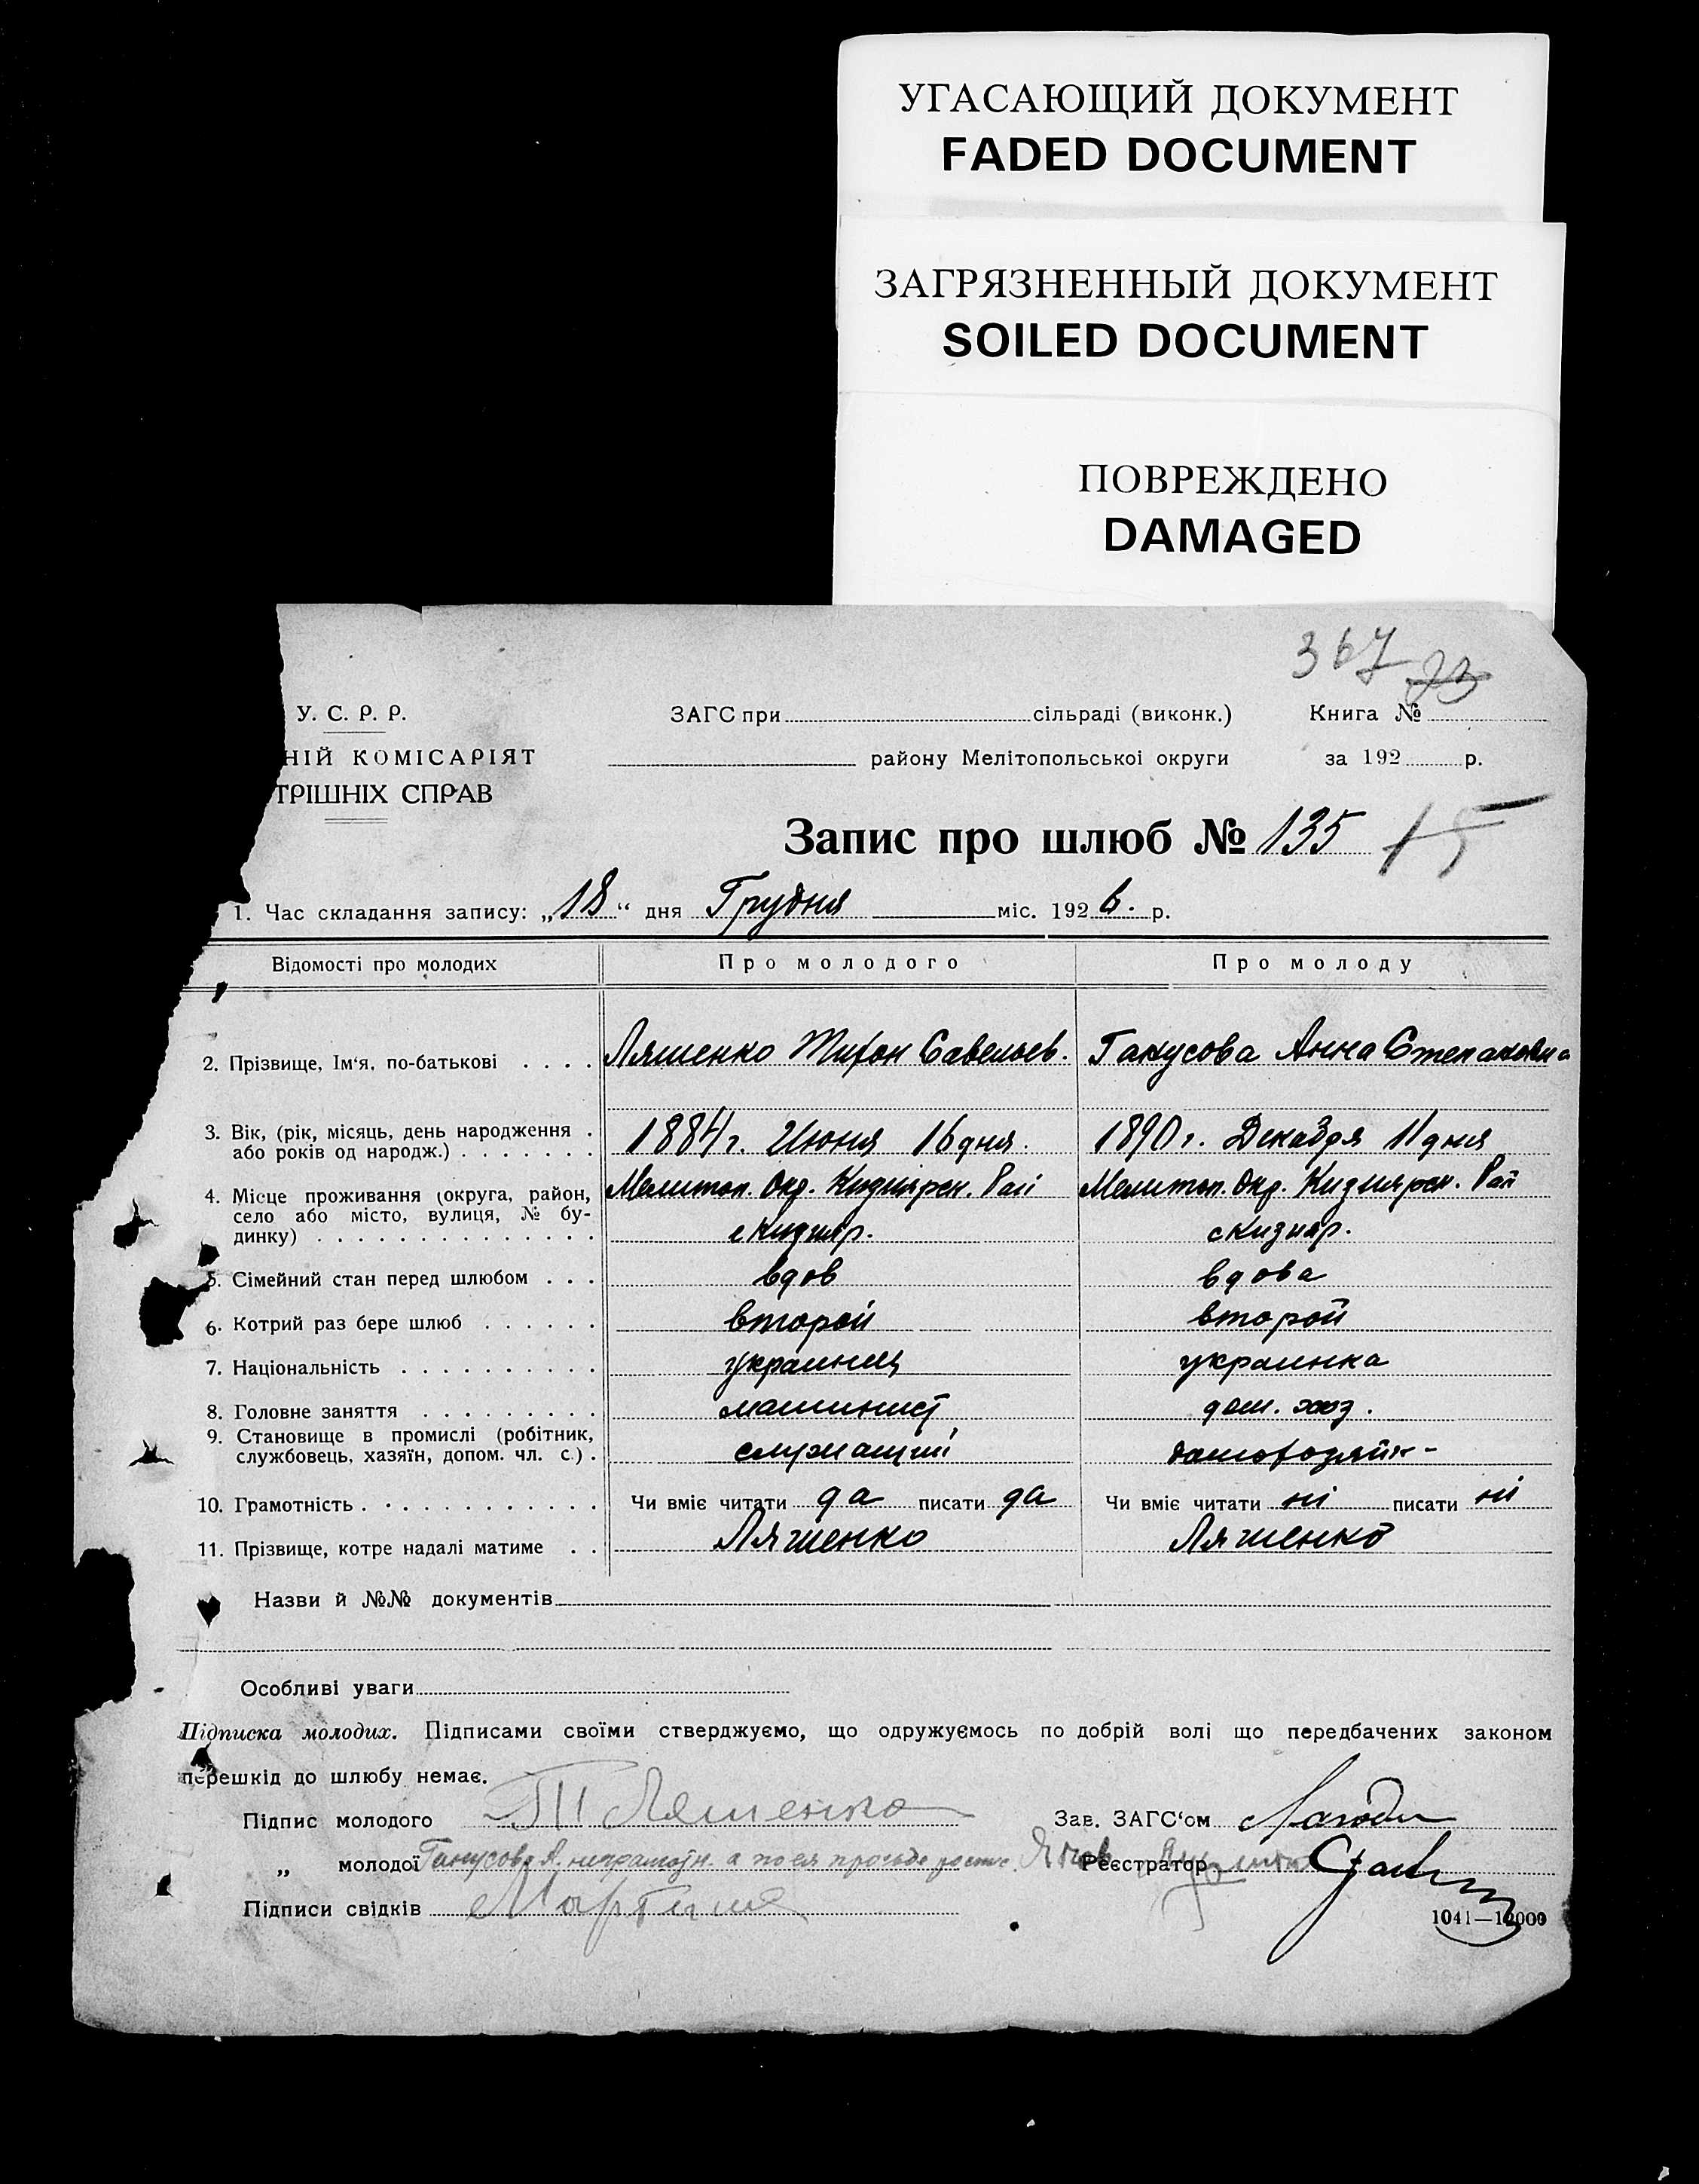 УГАСАЮЩИЙ ДОКУМЕНТ
FADED DOCUMENT
ЗАГРЯЗНЕННЫЙ ДОКУМЕНТ
SOILED DOCUMENT
ПОВРЕЖДЕНО
DAMAGED
367 23
У. С. Р. Р. ЗАГС при сільраді (виконк.) Книга №
НІЙ КОМІСАРІЯТ району Мелітопольської округи за 192 р.
ТРІШНІХ СПРАВ
Запис про шлюб № 135 15
1. Час складання запису: „18“ дня Грудня міс. 1926. р.
Відомості про молодих Про молодого Про молоду
2. Прізвище, Ім‘я, по-батькові . . . . Ляшенко Тифон Савельев. Ганусова Анна Степановна
3. Вік, (рік, місяць, день народження . 1884 г. Июня 16 дня. 1890 г. Декабря 11 дня
або років од народж.) . . . . . . .
4. Місце проживання (округа, район, Мелитоп. Окр. Кизиярск. Рай Мелитоп. Окр. Кизиярск. Рай
село або місто, вулиця, № бу-
динку) . . . . . . . . . . . . . . с Кизияр. с Кизияр.
5. Сімейний стан перед шлюбом . . . вдов вдова
6. Котрий раз бере шлюб . . . . . . второй второй
7. Національність . . . . . . . . . . украинец украинка
8. Головне заняття . . . . . . . . . машинист дом. хоз.
9. Становище в промислі (робітник,
службовець, хазяїн, допом. чл. с.) . служащий домохозяйк-
10. Грамотність . . . . . . . . . . . . Чи вміє читати да писати да Чи вміє читати ні писати ні
11. Прізвище, котре надалі матиме . . Ляшенко Ляшенко
Назви й №№ документів
Особливі уваги
Підписка молодих. Підписами своїми стверджуємо, що одружуємось по добрій волі що передбачених законом
перешкід до шлюбу немає.
Підпис молодого Т Ляшенко Зав. ЗАГС‘ом
„ молодої Ганусова А. неграмотн. а по ея просьбе Реєстратор
Підписи свідків
1041—12000